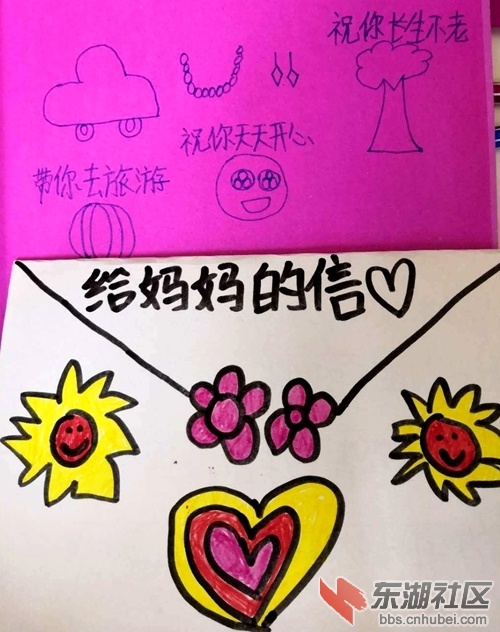 祝你长生不老
祝你天天开心
带你去旅游
给妈妈的信♡
东湖社区
bbs.cnhubei.com